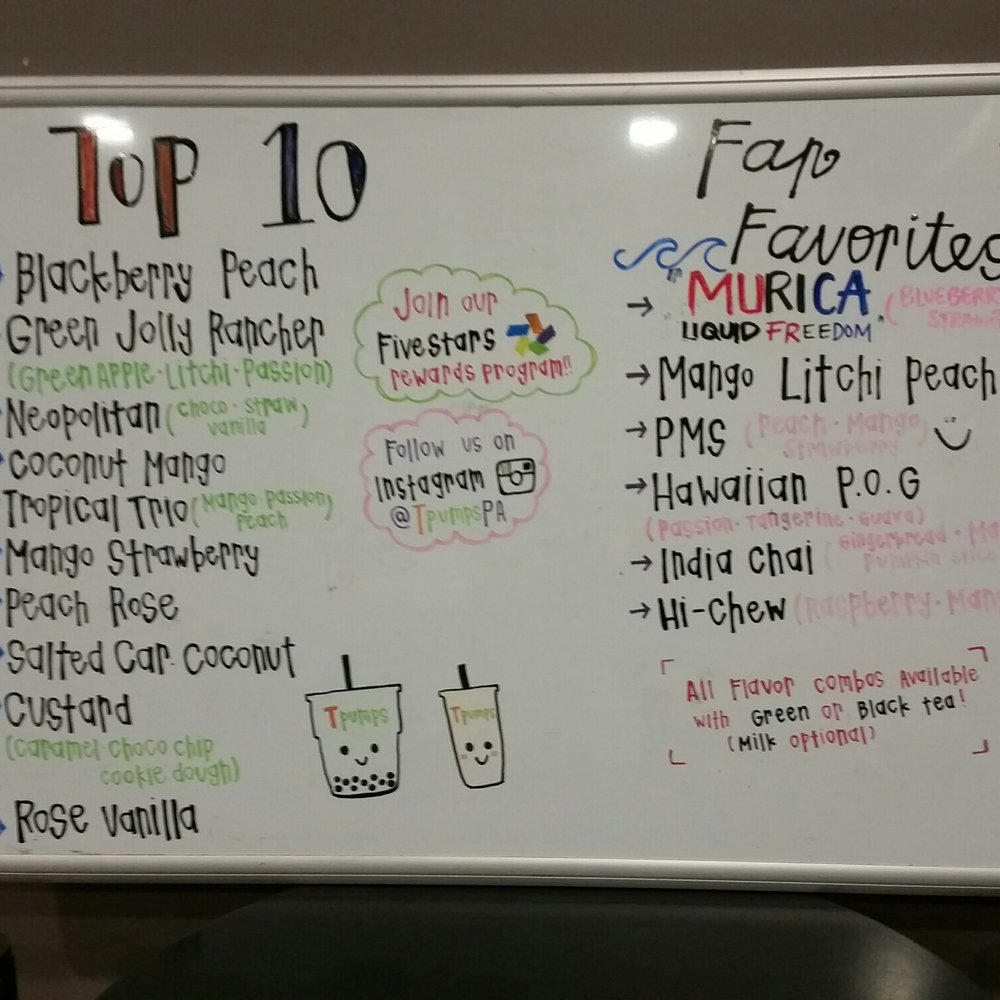 Top 10
Blackberry Peach
Green Jolly Rancher
(Green Apple · Litchi · Passion)
Neopolitan (choco · straw
vanilla)
Coconut Mango
Tropical Trio (Mango · passion
Peach)
Mango Strawberry
Peach Rose
Salted Car. Coconut
Custard
(caramel · choco chip
cookie dough)
Rose Vanilla
Join our
Fivestars
rewards program!!
Follow us on
Instagram
@TpumpsPA
Tpumps
Tpumps
Fap
Favorites
"MURICA"
LIQUID FREEDOM
Mango Litchi Peach
PMS (Peach · Mango
Strawberry)
Hawaiian P.O.G
(Passion · Tangerine · Guava)
India Chai (Gingerbread ·
Pumpkin spice
Hi-Chew (Raspberry ·
All Flavor combos Available
with Green or Black tea!
(Milk optional)